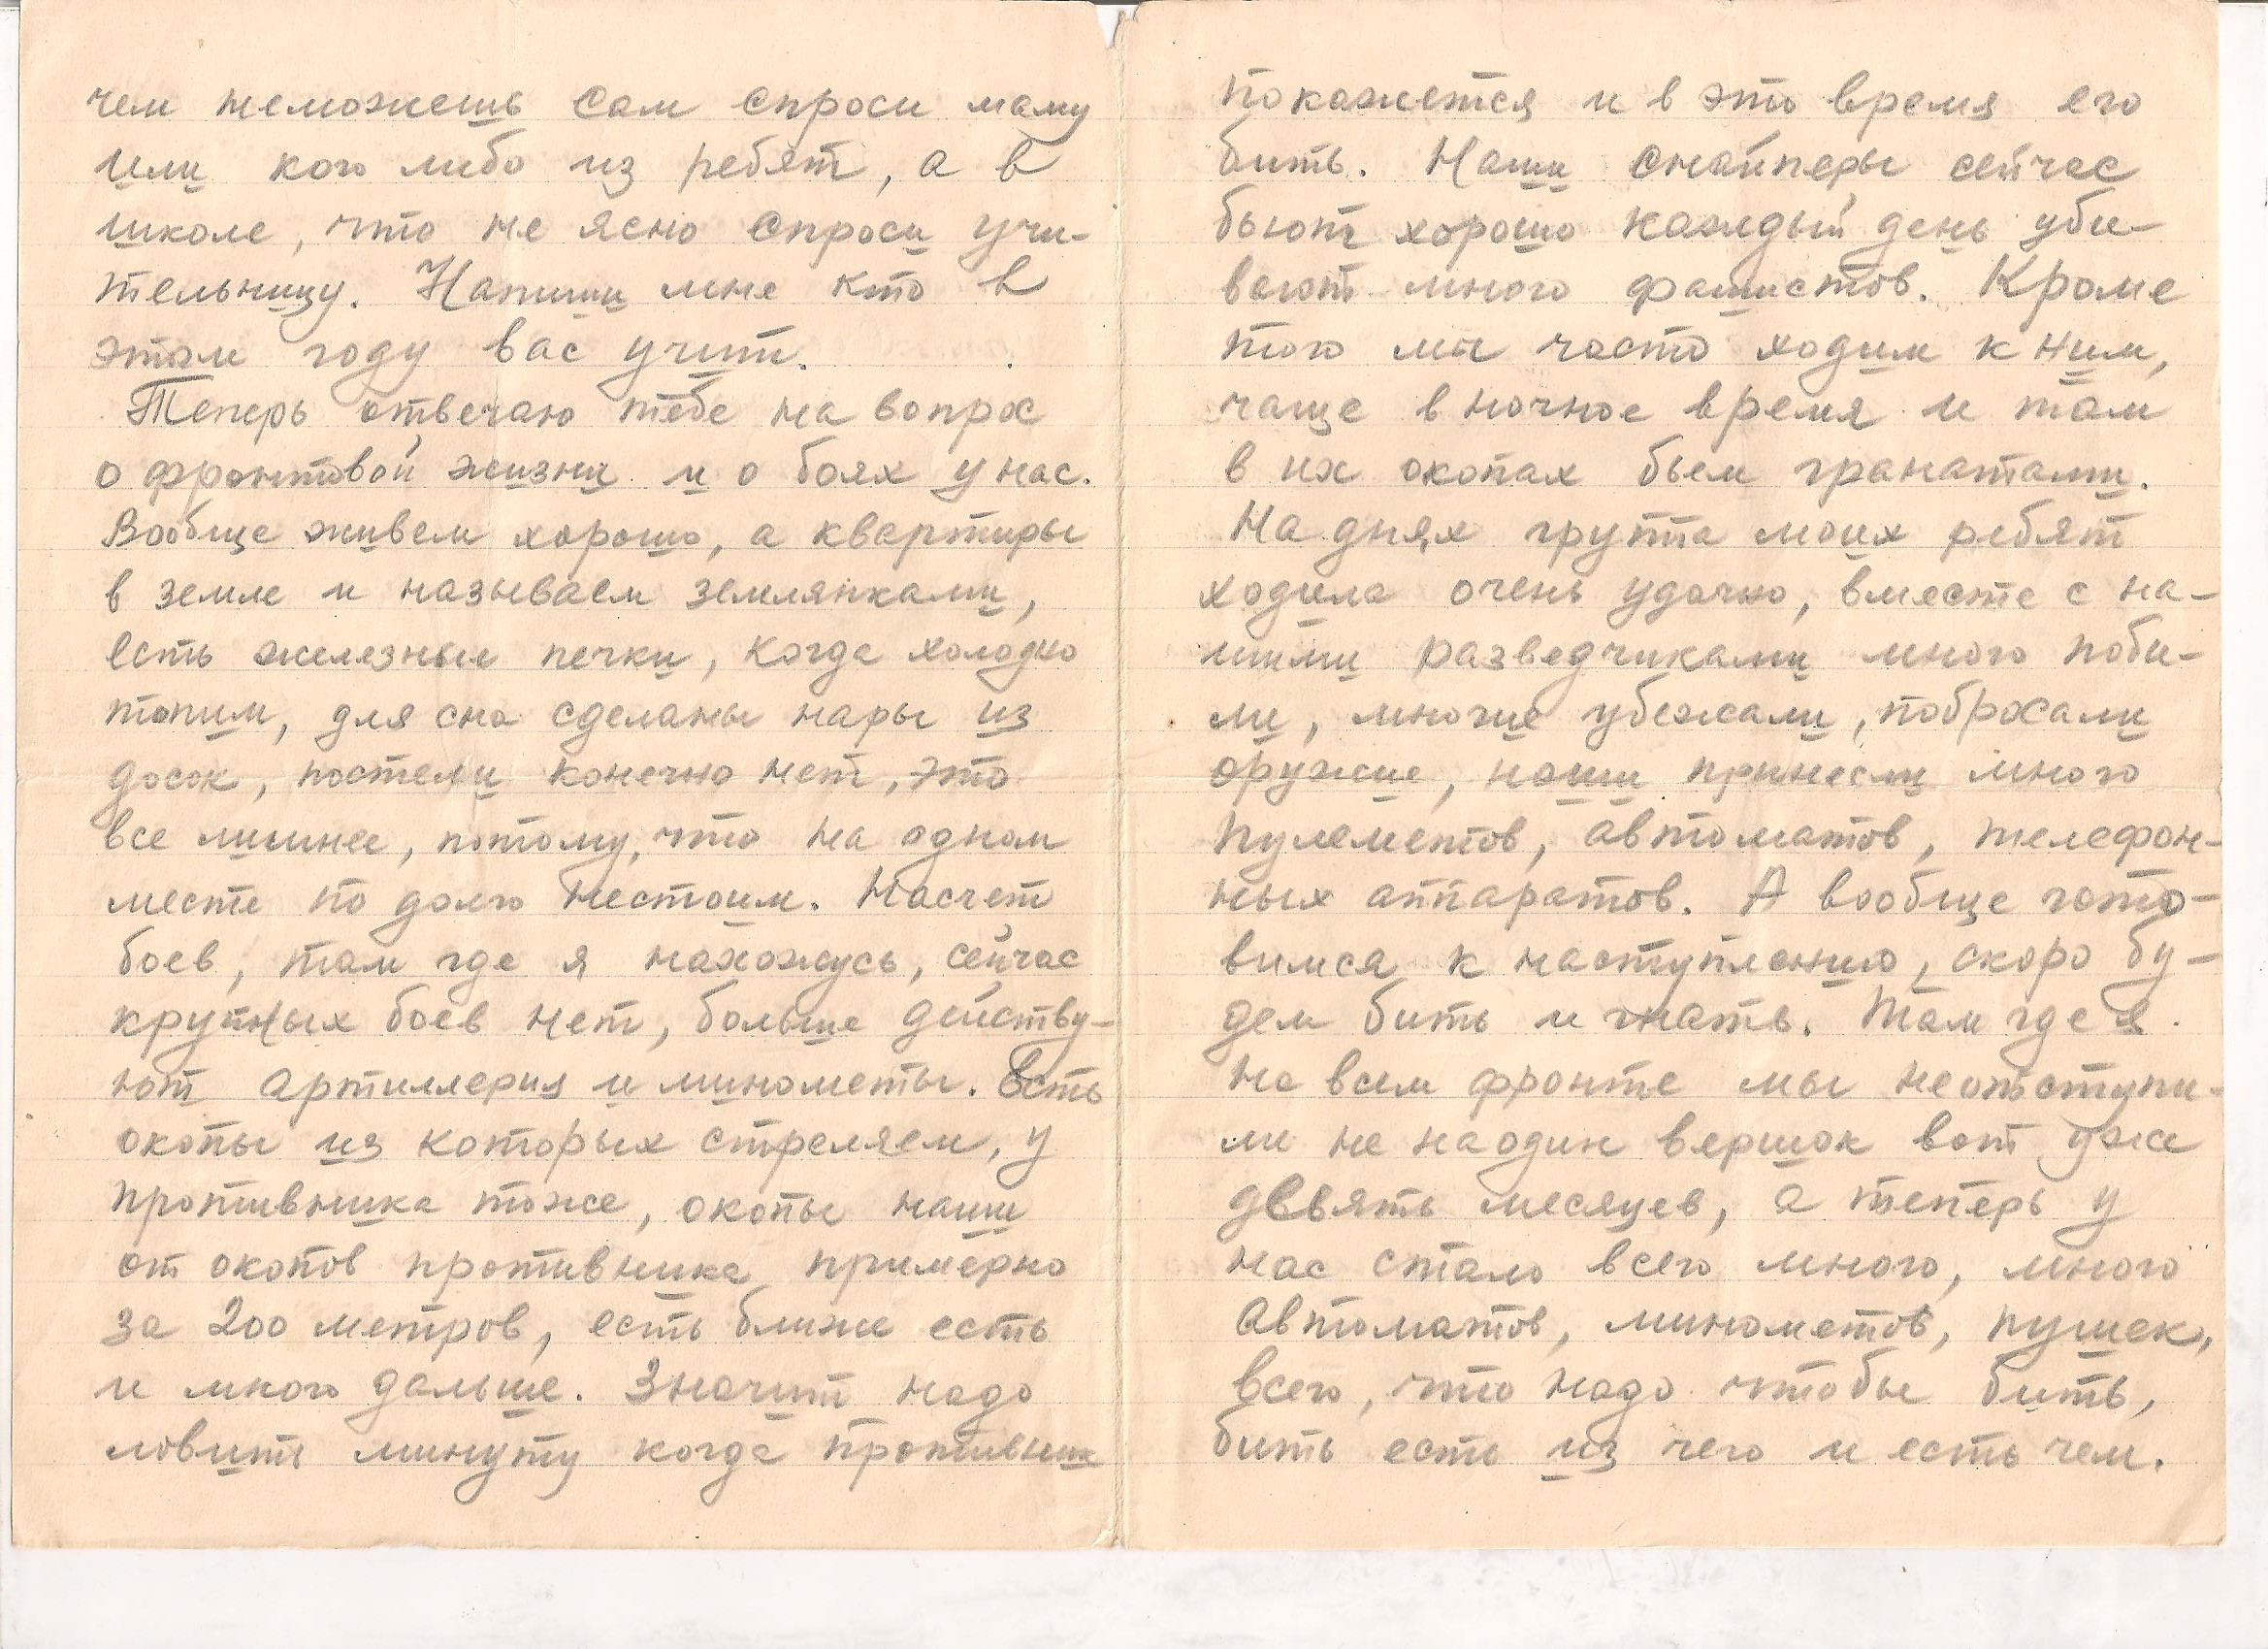 чем неможешь сам спроси маму
или кого либо из ребят, а в
школе, что не ясно спроси учи-
тельницу. Напиши мне кто в
этом году вас учит.
Теперь отвечаю тебе на вопрос
о фронтовой жизни и о боях у нас.
Вообще живем хорошо, а квартиры
в земле и называем землянками,
есть железные печки, когда холодно
топим, для сна сделаны нары из
досок, постели конечно нет, это
все лишнее, потому, что на одном
месте по долго нестоим. Насчет
боев, там где я нахожусь, сейчас
крупных боев нет, больше действу-
ют артиллерия и минометы. Есть
окопы из которых стреляем, у
противника тоже, окопы наши
от окопов противника примерно
за 200 метров, есть ближе есть
и много дальше. Значит надо
ловить минуту когда противник
покажется и в это время его
бить. Наши снайперы сейчас
бьют хорошо каждый день уби-
вают много фашистов. Кроме
того мы часто ходим к ним,
чаще в ночное время и там
в их окопах бьем гранатами.
На днях группа моих ребят
ходила очень удачно, вместе с на-
шими разведчиками много поби-
ли, многие убежали, побросали
оружие, наши принесли много
пулеметов, автоматов, телефон-
ных аппаратов. А вообще гото-
вимся к наступлению, скоро бу-
дем бить и гнать. Там где я
на всем фронте мы неотступи-
ли не наодин вершок вот уже
девять месяцев, а теперь у
нас стало всего много, много
автоматов, минометов, пушек,
всего, что надо чтобы бить,
бить есть из чего и есть чем.